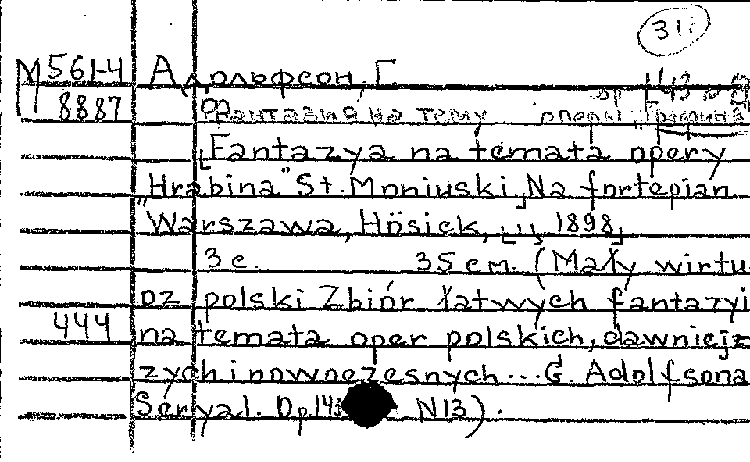 31
М 561-4 Адольфсон, Г.
8887 Фантазия на тему оперы "Графина
[Fantazya na temata opery
"Hrabina" St. Moniuski] Na fortepian
Warszawa, Hösick, [1898]
3 c. 35 cm. (Mały wirtu
oz polski Zbiór łatwych fantazyi
444 na temata oper polskich, dawniejz
zych i nowoczesnych... G. Adolfsona
Serya I. Op. 143 N13).